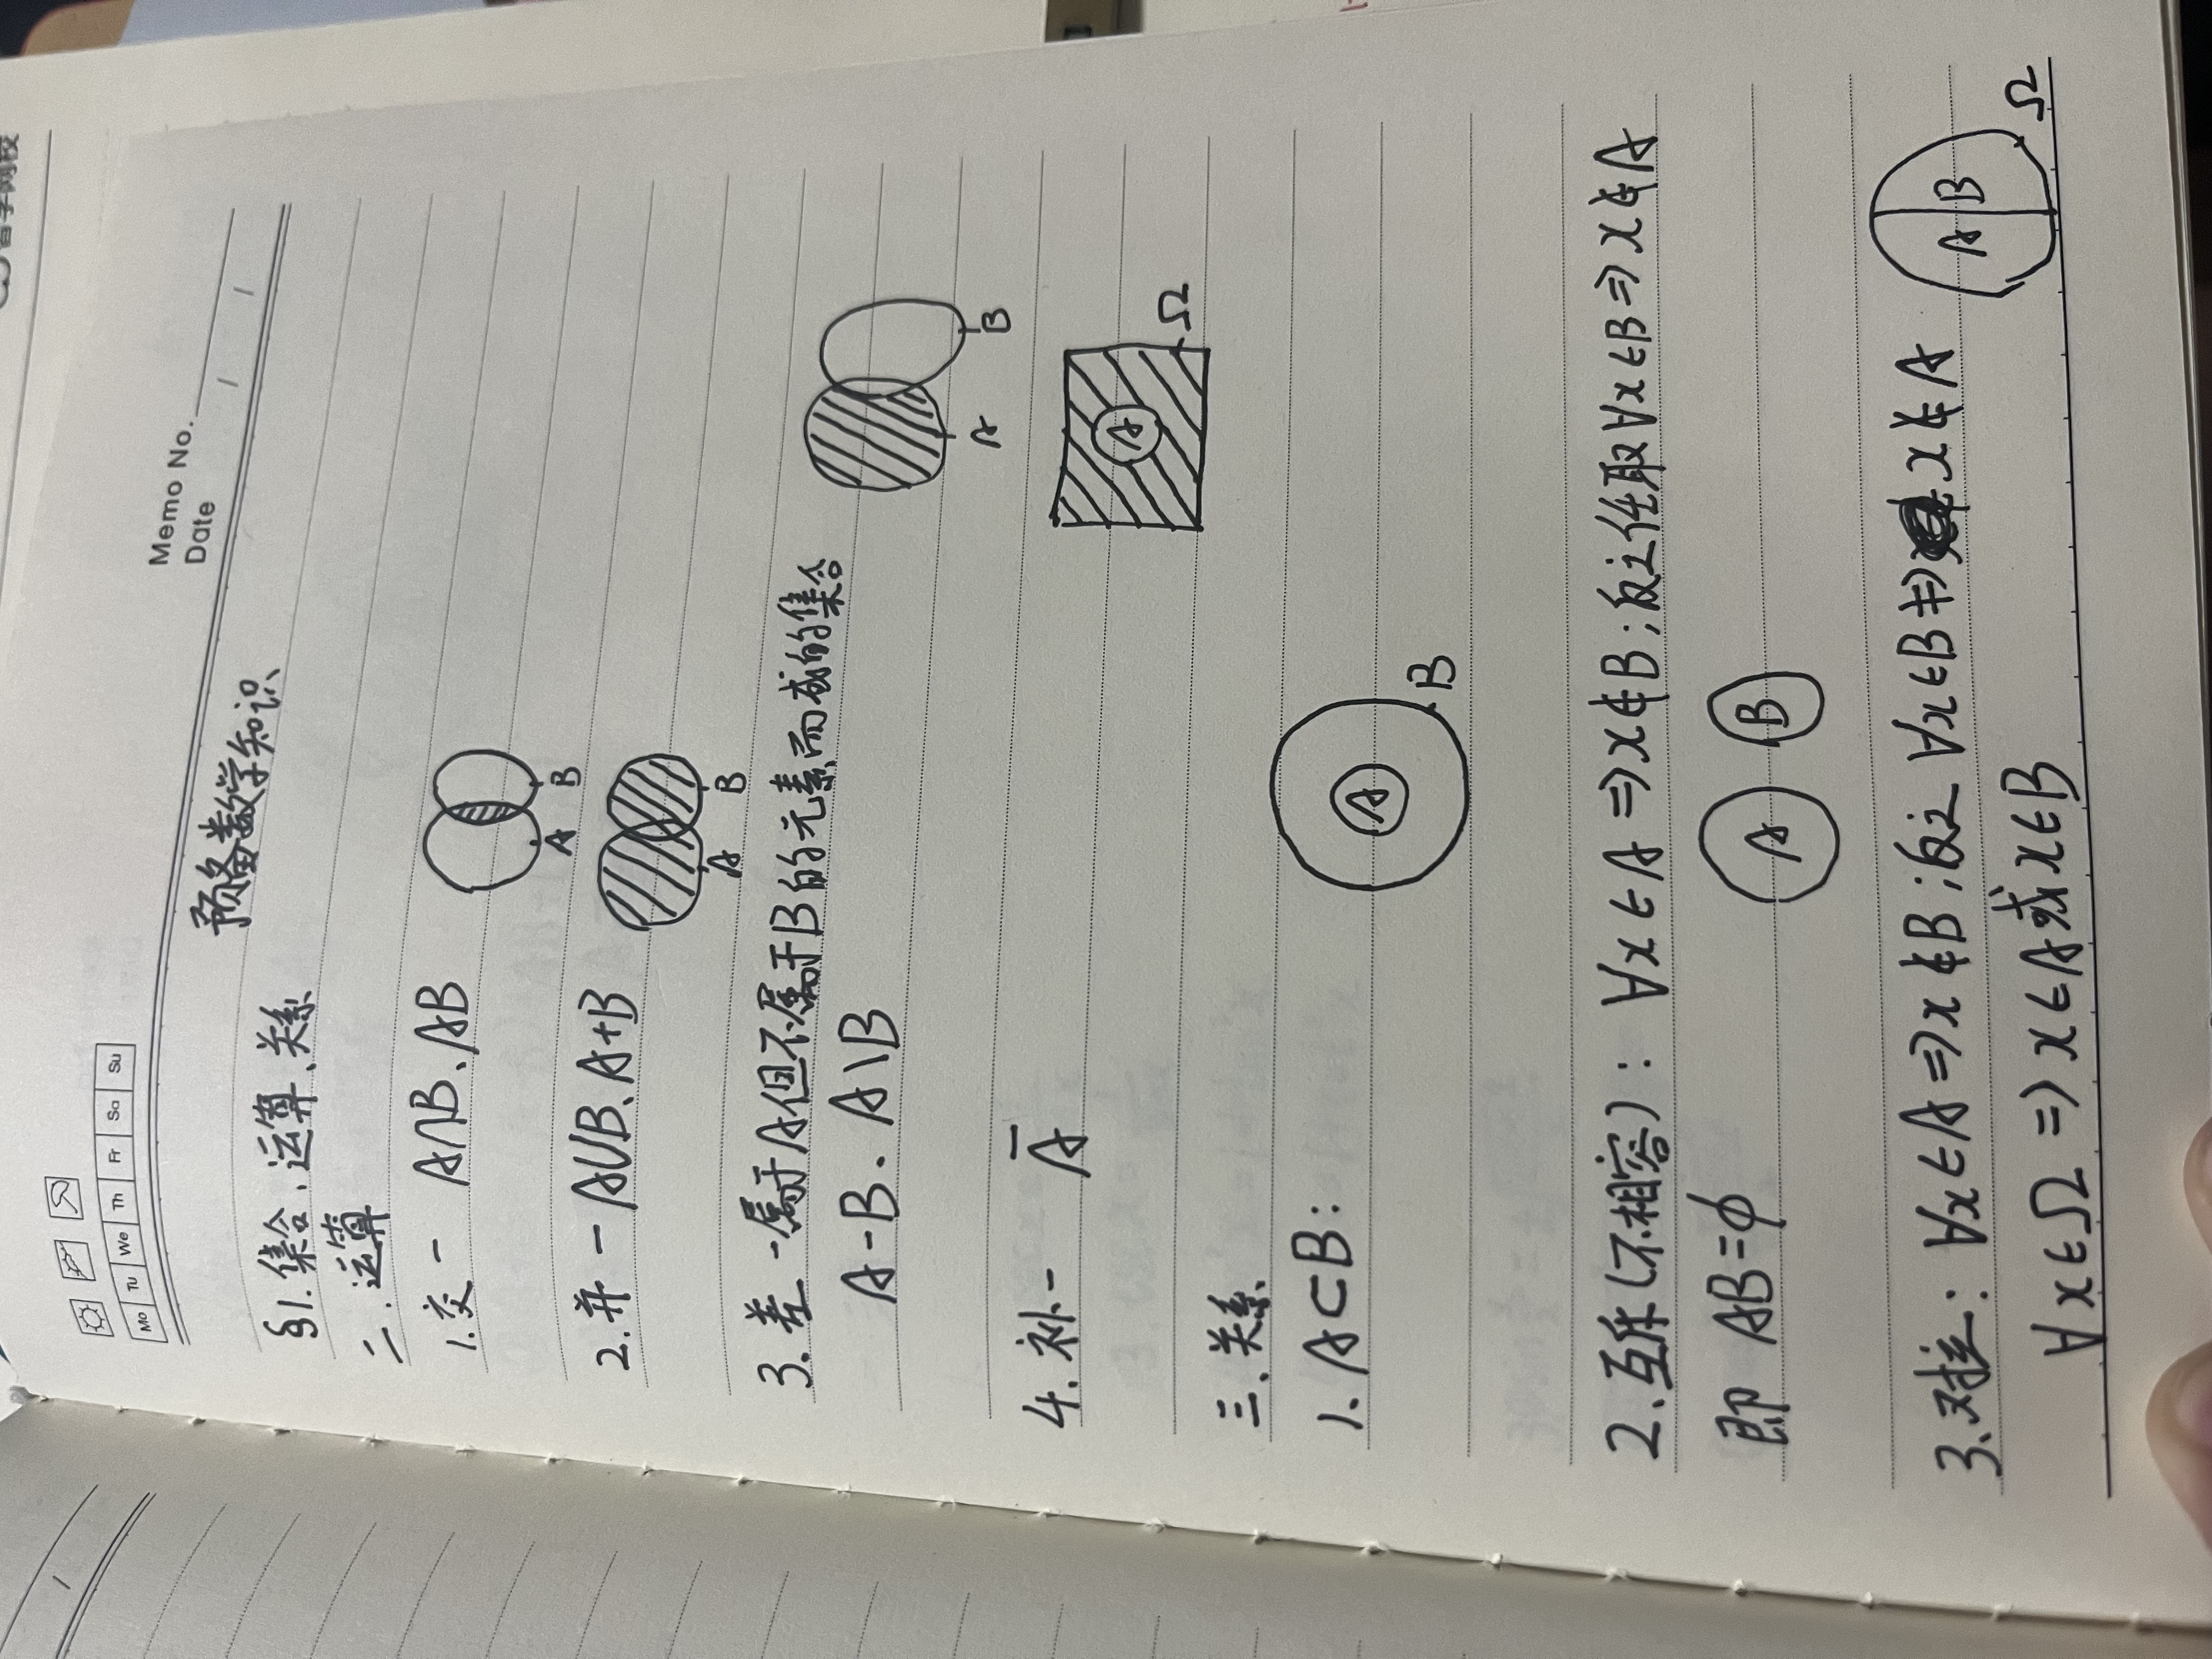 Mo Tu We Th Fr Sa Su
Memo No.
Date / /
预备数学知识
§1.集合、运算、关系
二.运算
1.交- A∩B、AB
A B
2.并- A∪B、A+B
A B
3.差-属于A但不属于B的元素而成的集合
A-B、A\B
A B
4.补- Ā
A Ω
三.关系
1. A⊂B:
A B
2.互斥(不相容): ∀x∈A⇒x∉B;反之任取∀x∈B⇒x∉A
即 AB=ϕ
A B
3.对立: ∀x∈A⇒x∉B;反之 ∀x∈B⇒x∉A
A B Ω
∀x∈Ω⇒x∈A或x∈B